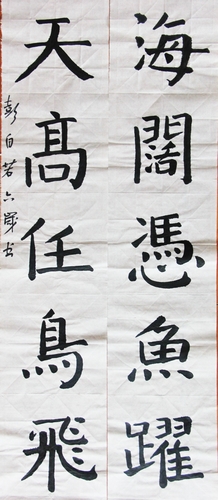 海闊憑魚躍
天髙任鳥飛
彭自若六歲书